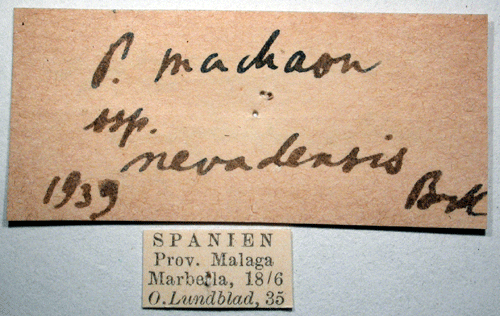 P. machaon
ssp.
nevadensis
1939 Bork
SPANIEN
Prov. Malaga
Marbella, 18/6
O. Lundblad, 35